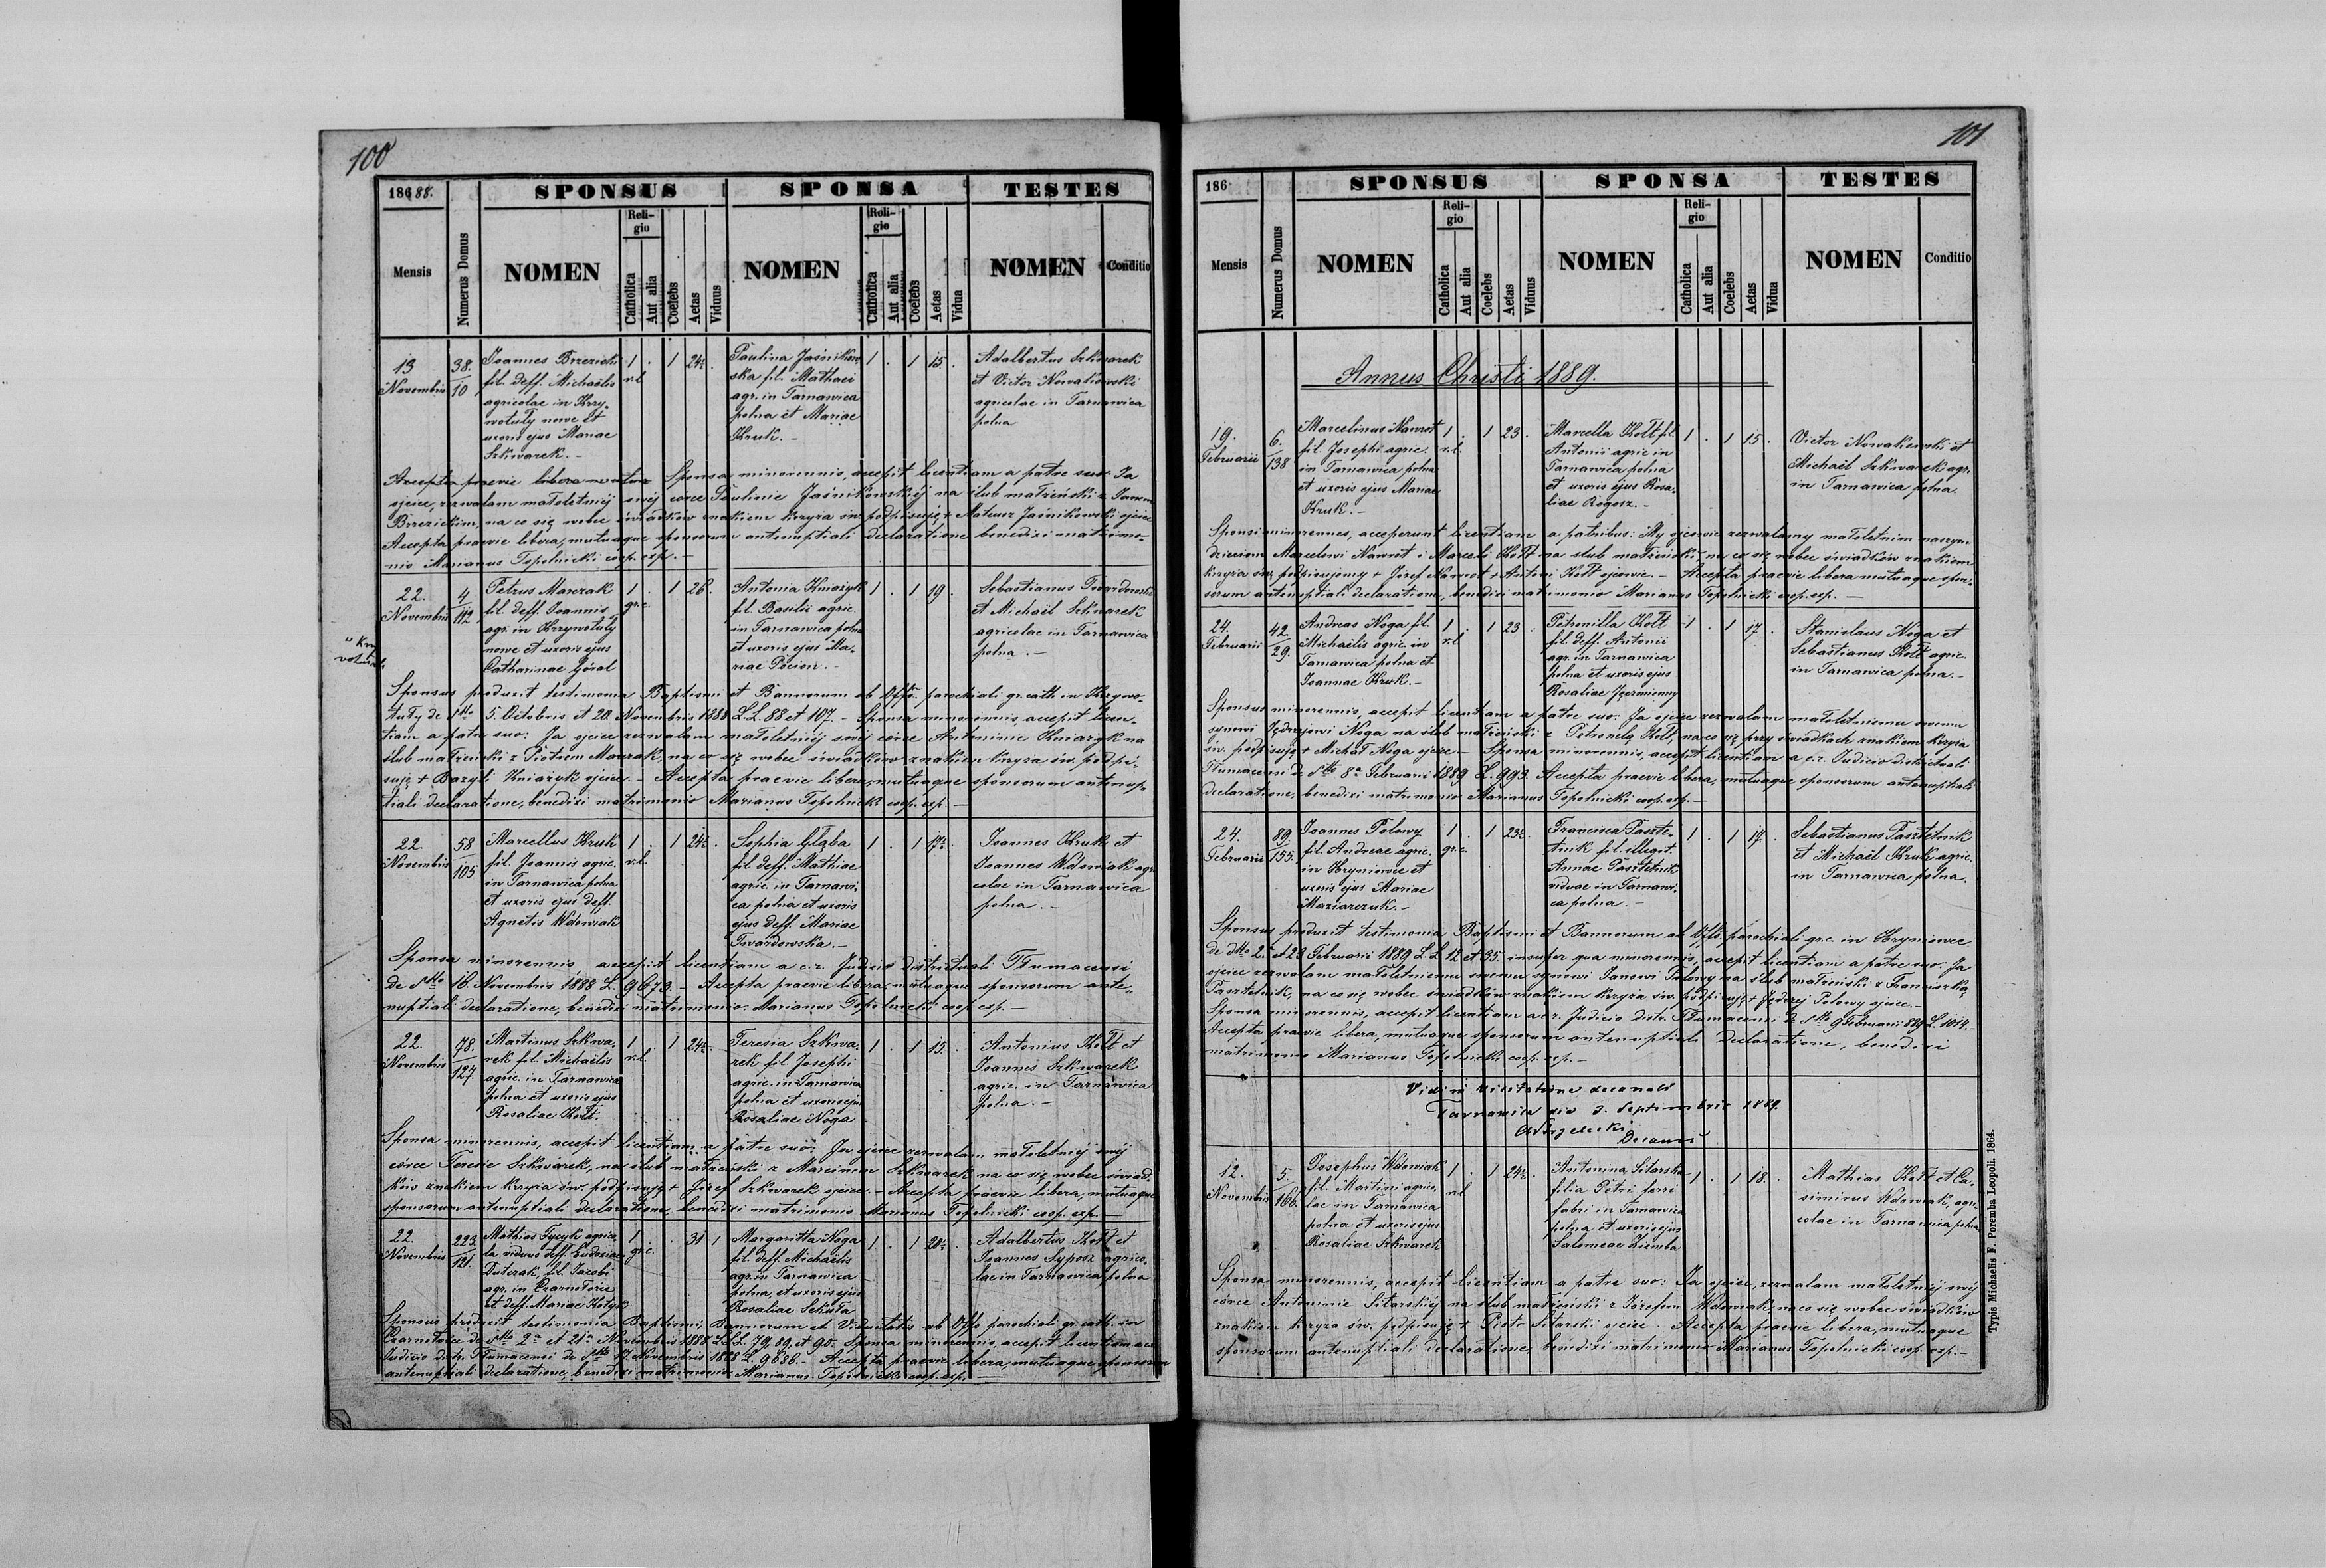 100
186 88.
SPONSUS SPONSA TESTES
Mensis Numerus Domus NOMEN Religio Catholica Aut alia Coelebs Aetas Viduus NOMEN Religio Catholica Aut alia Coelebs Aetas Vidua NOMEN Conditio
13 Novembris
38. 10
Joannes Brzezicki
fil. deff. Michaëlis
agricolae in Krzy-
wotuły nowe et
uxoris ejus Mariae
Szkwarek. -
1 r.l. . 1 24½ .
Paulina Jaśnikow
ska fil. Mathaei
agr. in Tarnawica
polna et Mariae
Kruk. -
1 . 1 15. .
Adalbertus Szkwarek
et Victor Nowakowski
agricolae in Tarnawica
polna
Accepta praevie libera Sponsa minorennis, accepit licentiam a patre suo: Ja
ojciec, zezwalam małoletniéj swéj córce Paulinie Jaśnikowskiéj na ślub małżeński z Janem
Brzezickim, na co się wobec świadków znakiem krzyża św. podpisuję + Mateusz Jaśnikowski ojciec
Accepta praevie libera, mutuaque sponsorum antenuptiali declaratione benedixi matrimo-
nio Marianus Topolnicki coop. exp. -
22. Novembris
4 112
Petrus Marczak
fil. deff. Joannis
agr. in Krzywotuły
nowe et uxoris ejus
Catharinae Góral
1 gr.c. . 1 26. .
Antonia Kniazyk
fil. Basilii agric.
in Tarnawica polna
et uxoris ejus Ma-
riae Pścion. -
1 . 1 19 .
Sebastianus Twardowski
et Michaël Szkwarek
agricolae in Tarnawica
polna. -
Sponsus produxit testimonia Baptismi et Bannorum ab Offo. parochiali gr. cath. in Krzywo-
tuły de dtto 5. Octobris et 20. Novembris 1888 L.L. 88 et 107. - Sponsa minorennis, accepit licen-
tiam a patre suo: Ja ojciec zezwalam małoletniéj swéj córce Antoninie Kniazyk na
ślub małżeński z Piotrem Marczak, na co się wobec świadków znakiem krzyża św. podpi-
suję + Bazyli Kniazyk ojciec. - Accepta praevie libera, mutuaque sponsorum antenup-
tiali declaratione, benedixi matrimonio Marianus Topolnicki coop. exp. -
22. Novembris
58 105
Marcellus Kruk
fil. Joannis agric.
in Tarnawica polna
et uxoris ejus deff.
Agnetis Wdowiak
1 r.l. . 1 24½ .
Sophia Głąba
fil. deff. Mathiae
agric. in Tarnawi-
ca polna et uxoris
ejus deff. Mariae
Twardowska. -
1 . 1 17½ .
Joannes Kruk et
Joannes Wdowiak agri
colae in Tarnawica
polna. -
Sponsa minorennis accepit licentiam a c. r. Judicio districtuali Tłumacensi
de dtto 16. Novembris 1888 L. 9673. - Accepta praevie libera, mutuaque sponsorum ante-
nuptiali declaratione, benedixi matrimonio. Marianus Topolnicki coop. exp. -
22. Novembris
78. 127.
Martinus Szkwa-
rek fil. Michaëlis
agric. in Tarnawica
polna et uxoris ejus
Rosaliae Kott.
1 r.l. . 1 24½ .
Teresia Szkwa-
rek fil. Josephi
agric. in Tarnawica
polna et uxoris ejus
Rosaliae Noga
1 . 1 19. .
Antonius Kott et
Joannes Szkwarek
agric. in Tarnawica
polna. -
Sponsa minorennis, accepit licentiam a patre suo: Ja ojciec zezwalam małoletniéj swéj
córce Teresie Szkwarek, na ślub małżeński z Marcinem Szkwarek na co się wobec świad-
ków znakiem krzyża św. podpisuję + Józef Szkwarek ojciec. - Accepta praevie libera, mutuaque
sponsorum antenuptiali declaratione, benedixi matrimonio Marianus Topolnicki coop. exp. -
22. Novembris
223. 121.
Mathias Tycyk agrico
la viduus deff. Eudociae
fil. Jacobi
agr. in Czarnołoźce
et deff. Mariae Kotyk
1 gr.c. . . 31 1
Margaritta Noga
fil. deff. Michaëlis
agr. in Tarnawica
polna, et uxoris ejus
Rosaliae Sekuła
1 . 1 20½ .
Adalbertus Kott et
Joannes Syposz agrico-
lae in Tarnawica polna
Sponsus produxit testimonia Baptismi, Bannorum et Viduitatis ab Offo parochiali gr. cath. in
Czarnołoźce de dtto 9a et 21a Novembris 1888 L.L.L. 79, 89, et 90. Sponsa minorennis, accepit licentiam a c.r.
Judicio distr. Tłumacensi de dtto 17. Novembris 1888 L. 9686. - Accepta praevie libera, mutuaque sponsorum
antenuptiali declaratione, benedixi matrimonio Marianus Topolnicki coop. exp. -
101
186
SPONSUS SPONSA TESTES
Mensis Numerus Domus NOMEN Religio Catholica Aut alia Coelebs Aetas Viduus NOMEN Religio Catholica Aut alia Coelebs Aetas Vidua NOMEN Conditio
Annus Christi 1889.
19. Februarii
6. 138
Marcelinus Nawrot
fil. Josephi agric.
in Tarnawica polna
et uxoris ejus Mariae
Kruk. -
1 r.l. . 1 23. .
Marcella Kott fil.
Antonii agric in
Tarnawica polna
et uxoris ejus Rosa-
liae Rogosz. -
1 . 1 15 .
Victor Nowakowski et
Michaël Szkwarek agr.
in Tarnawica polna.
Sponsi minorennes, acceperunt licentiam a patribus: My ojcowie zezwalamy małoletnim naszym
dzieciom Marcelowi Nawrot i Marceli Kott na ślub małżeński na co się wobec świadków znakiem
krzyża św. podpisujemy + Józef Nawrot + Antoni Kott ojcowie. - Accepta praevie libera mutuaque spon-
sorum antenuptiali declaratione, benedixi matrimonio Marianus Topolnicki coop. exp. -
24. Februarii
42. 29.
Andreas Noga fil.
Michaëlis agric. in
Tarnawica polna et
Joannae Kruk. -
1 r.l. . 1 23 .
Petronilla Kott
fil. deff. Antonii
agr. in Tarnawica
polna et uxoris ejus
Rosaliae Jęczmienny
1 . 1 17 .
Stanislaus Noga et
Sebastianus Kott agric.
in Tarnawica polna. -
Sponsus minorennis, accepit licentiam a patre suo: Ja ojciec zezwalam małoletniemu swemu
synowi Jędrzejowi Noga na ślub małżeński z Petronelą Kott, na co się przy świadkach znakiem krzyża
św. podpisuję + Michał Noga ojciec - Sponsa minorennis, accepit licentiam a c.r. Judicio districtuali
Tłumacensi de dtto 8a Februarii 1889 L. 993. Accepta praevie libera, mutuaque sponsorum antenuptiali
declaratione, benedixi matrimonio Marianus Topolnicki coop. exp. -
24. Februarii
89 155.
Joannes Polowy
fil. Andreae agric.
in Hryniowce et
uxoris ejus Mariae
Maziarczuk. -
1 gr.c. . 1 23½ .
Francisca Paszte-
tnik fil. illegit.
Annae Pasztetnik
viduae in Tarnawi-
ca polna. -
1 . 1 17. .
Sebastianus Pasztetnik
et Michaël Kruk agric.
in Tarnawica polna.
Sponsus produxit testimonia Baptismi et Bannorum ab Offo parochiali gr.c. in Hryniowce
de dtto 2. et 23 Februarii 1889 L.L. 12 et 35 insuper qua minorennis, accepit licentiam a patre suo: Ja
ojciec zezwalam małoletniemu swemu synowi Janowi Polowy na ślub małżeński z Franciszką
Pasztetnik, na co się wobec świadków znakiem krzyża św. podpisuję + Jędrzej Polowy ojciec. -
Sponsa minorennis, accepit licentiam a c.r. Judicio distr. Tłumacensi de dtto 9 Februarii 889 L. 1014. -
Accepta praevie libera, mutuaque sponsorum antenuptiali declaratione, benedixi
matrimonio Marianus Topolnicki coop. exp. -
Vidi in visitatione decanali
Tarnawica die 3. Septembris 1889.
Decanus
12. Novembris
5. 166.
Josephus Wdowiak
fil. Martini agrico-
lae in Tarnawica
polna et uxoris ejus
Rosaliae Szkwarek
1 r.l. . 1 24½ .
Antonina Sitarska
filia Petri ferri
fabri in Tarnawica
polna et uxoris ejus
Salomeae Ziemba
1 . 1 18. .
Mathias Kott et Ca-
simirus Wdowiak, agri-
colae in Tarnawica polna
Sponsa minorennis, accepit licentiam a patre suo: Ja ojciec, zezwalam małoletniéj swéj
córce Antoninie Sitarskiéj na ślub małżeński z Józefem Wdowiak, na co się wobec świadków
znakiem krzyża św. podpisuję + Piotr Sitarski ojciec. Accepta praevie libera, mutuaque
sponsorum antenuptiali declaratione, benedixi matrimonio Marianus Topolnicki coop. exp. -
Typis Michaelis F. Poremba Leopoli. 1864.